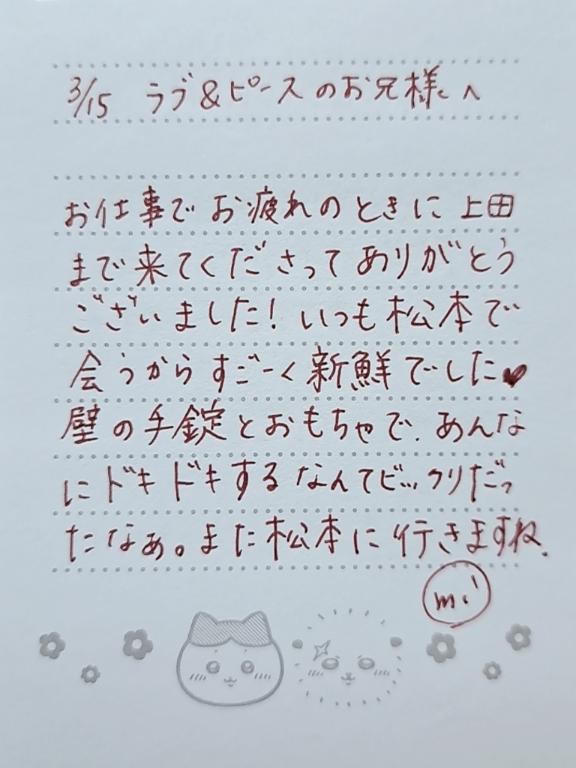 3/15 ラブ&ピースのお兄様へ
お仕事でお疲れのときに上田
まで来てくださってありがとう
ございました!いつも松本で
会うからすごーく新鮮でした♥
壁の手錠とおもちゃで、あんな
にドキドキするなんてビックリだっ
たなぁ。また松本に行きますね。
mi